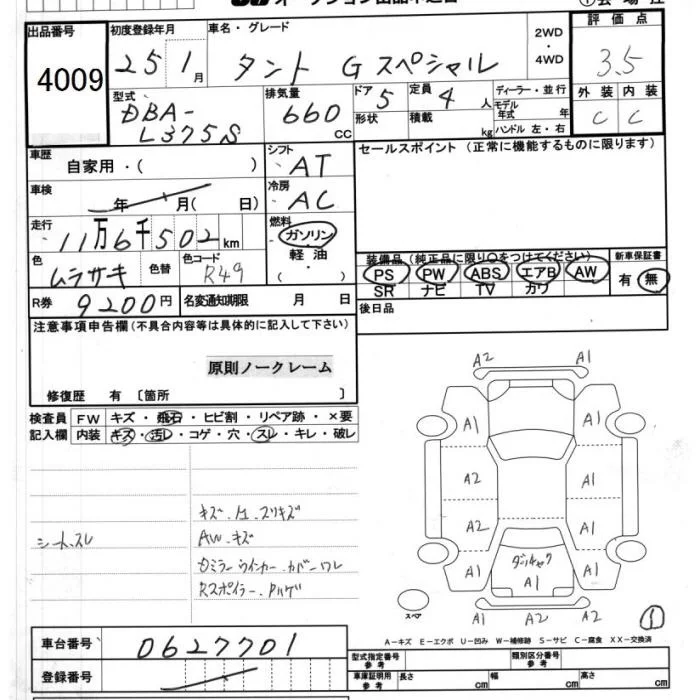 出品番号
4009
初度登録年月
25 1月
車名・グレード
タント Gスペシャル
2WD
・
4WD
評価点
3.5
外装 内装
C C
型式
DBA-
L375S
排気量
660
CC
ドア 5
形状
定員 4 人
積載 kg
ディーラー・並行
モデル
年式 年
ハンドル 左・右
車歴
自家用・( )
シフト
AT
セールスポイント(正常に機能するものに限ります)
車検
年 月( 日)
冷房
AC
走行
11万6千502km
燃料
ガソリン
軽油
( ・ )
色
ムラサキ
色替
色コード
R49
装備品(純正品に限り○をつけてください)
PS PW ABS エアB AW
SR ナビ TV カワ
新車保証書
有 無
R券 9200円
名変通知期限 月 日
後日品
注意事項申告欄(不具合内容等は具体的に記入して下さい)
原則ノークレーム
修復歴 有 〔箇所 〕
検査員
記入欄
FW キズ・飛石・ヒビ割・リペア跡・×要
内装 キズ・汚レ・コゲ・穴・スレ・キレ・破レ
シートスレ
キズ・凹・スリキズ
AW・キズ
ミラーウインカー・カバーワレ
Rスポイラー・ハゲ
A2 A1
A1 A1
A2 A1
A2 A1
A1 A1
ダンキャク
A1
A1 A2 A2
スペア
1
A-キズ E-エクボ U-凹み W-補修跡 S-サビ C-腐食 XX-交換済
車台番号 0627701
登録番号
型式指定番号
参考
類別区分番号
参考
車庫証明用
参考
長さ cm 幅 cm 高さ cm